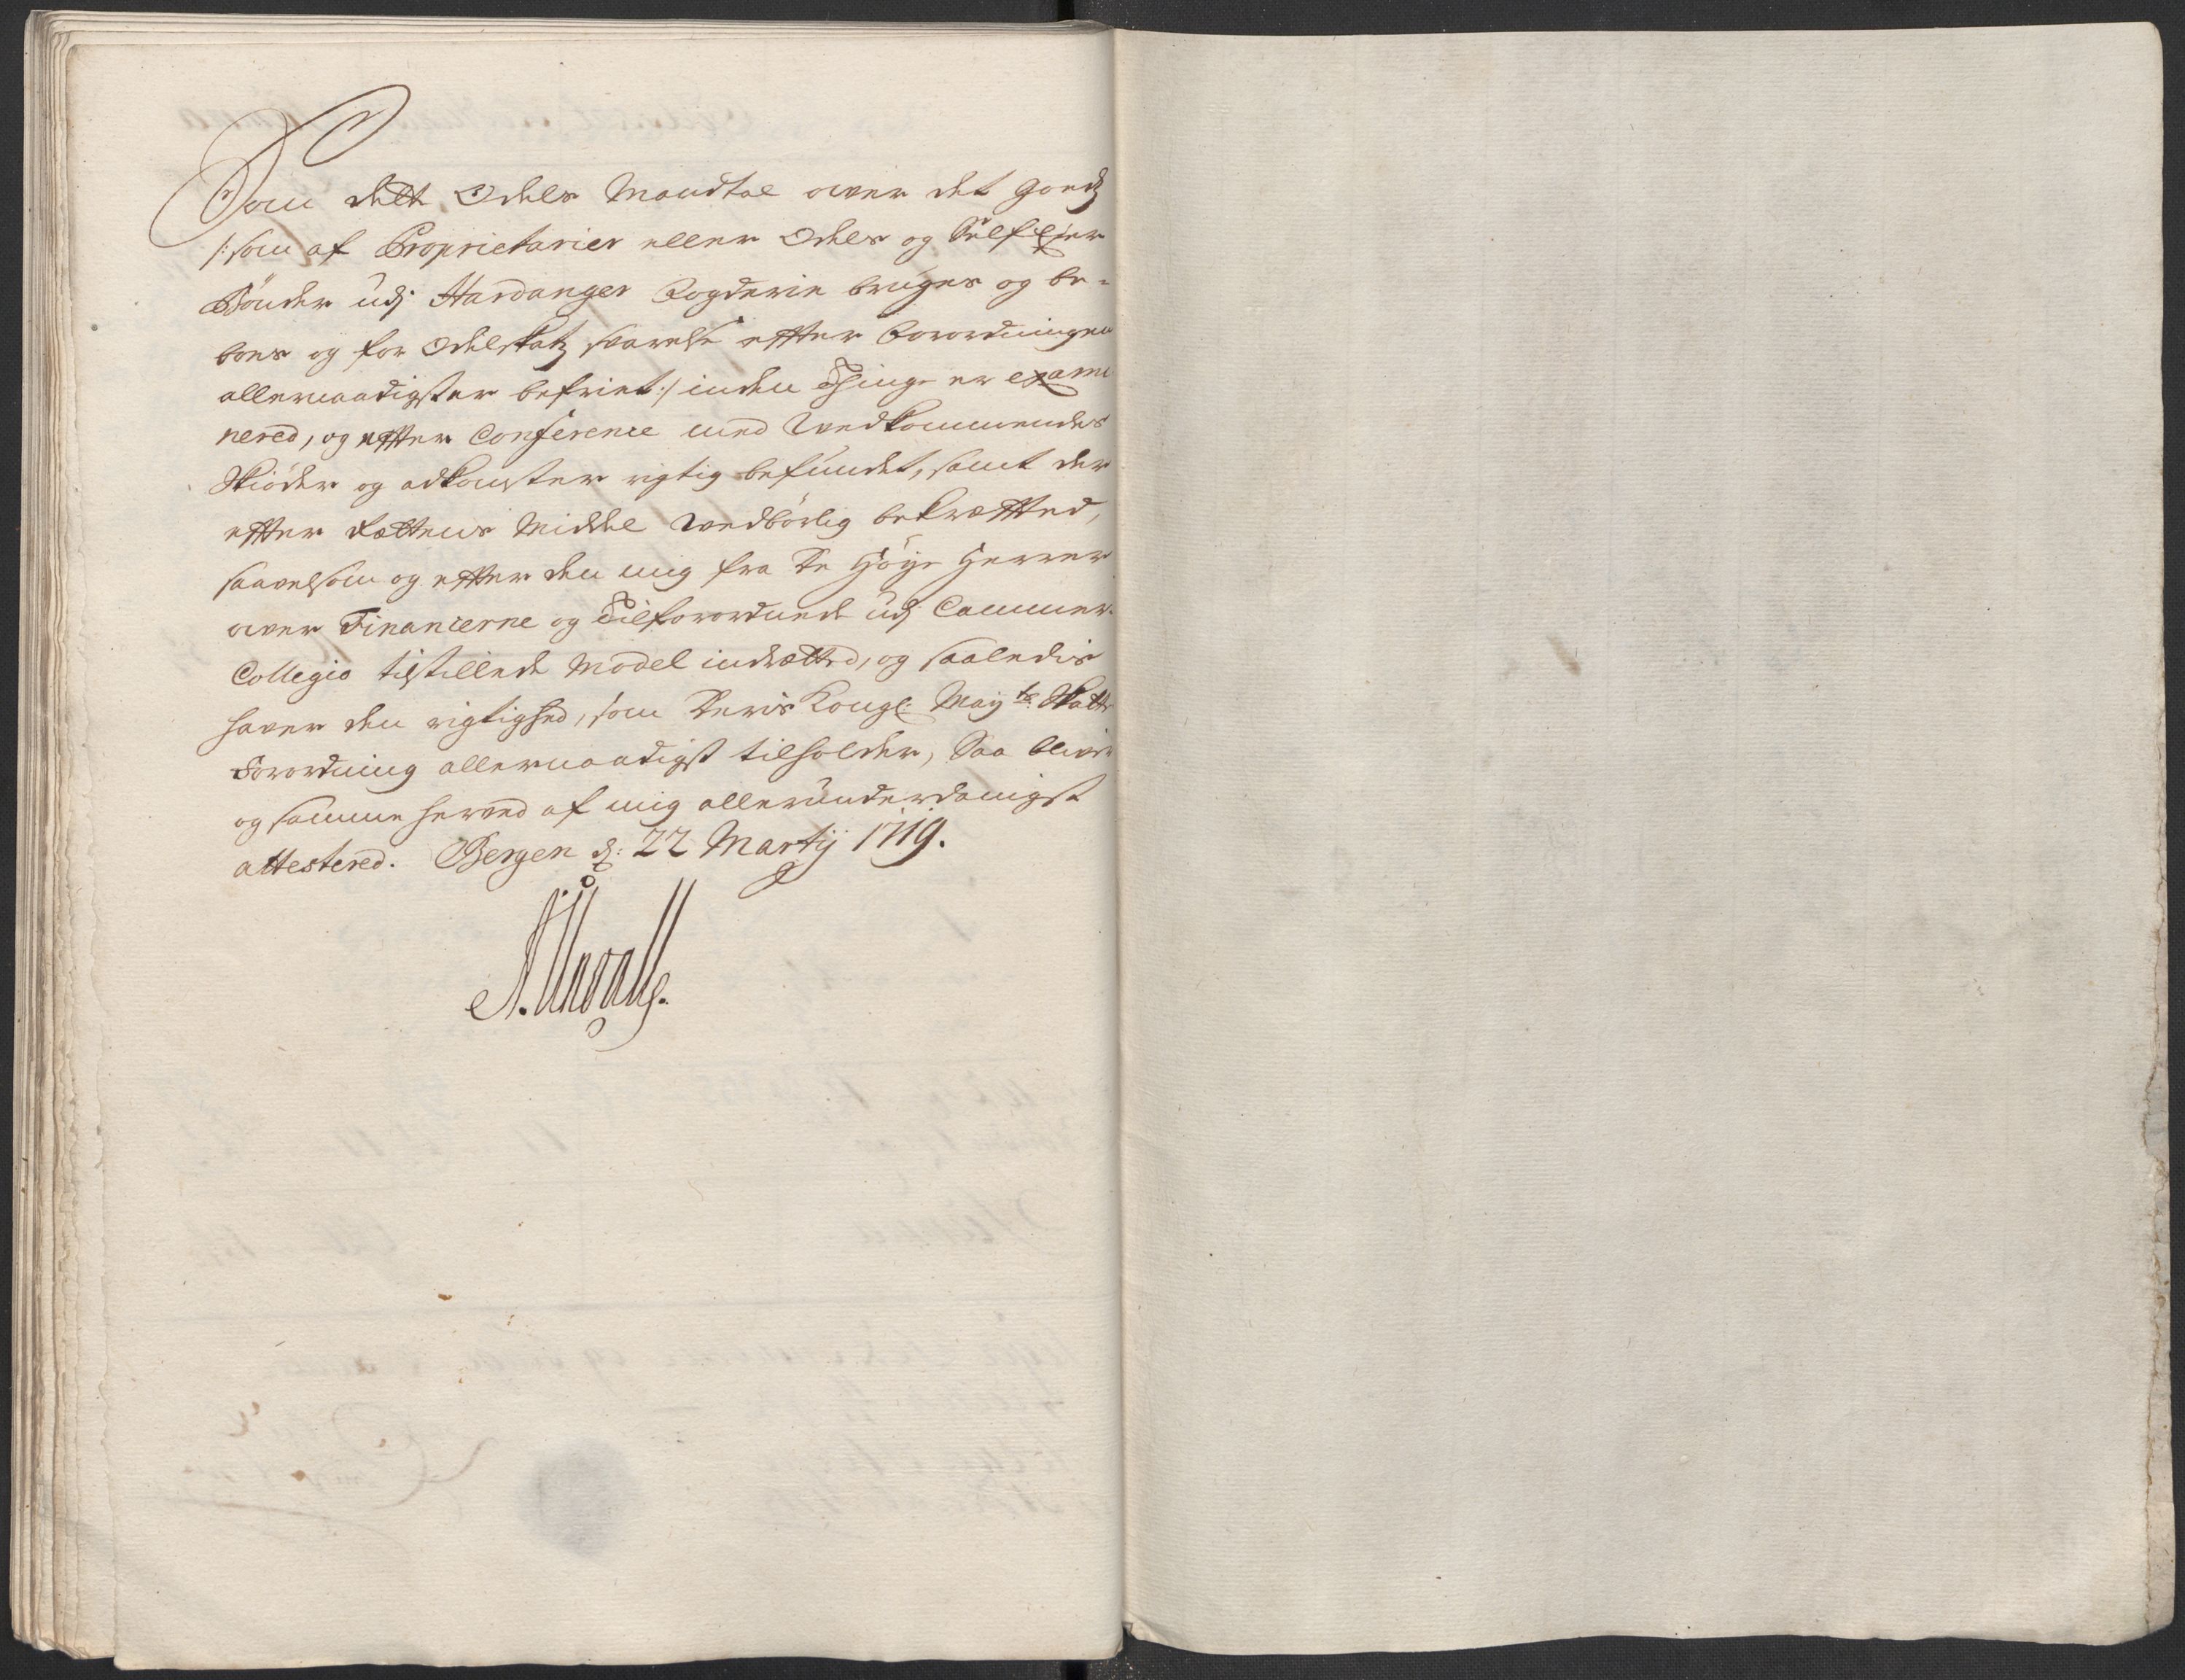 Som dette Odels Mandtal over det Goedz
/: som af Proprietarier eller Odels og Sælfejer
Bönder udj Hardanger Fogderie bruges og be-
boes og for Odelskatz svarelse effter Forordningen
allernaadigster befriet :/ inden Tinge er exami
nered, og effter Conference med Wedkommendes
Skiöder og adkomster rigtig befundet, samt der
effter Rættens Middel wedbörlig bekræfftet,
saavelsom og effter den mig fra De Höye Herrer
over Financerne og Tilforordnede udj Cammer-
Collegio tilstillede Model indrætted, og saaledis
haver den rigtighed, som Deris Kongl: May.ts Skatte
Forordning allernaadigst tilholder, Saa bliver
og samme herved af mig allerunderdanigst
attestered. Bergen d: 22 Martij 1719.
A. Undall.